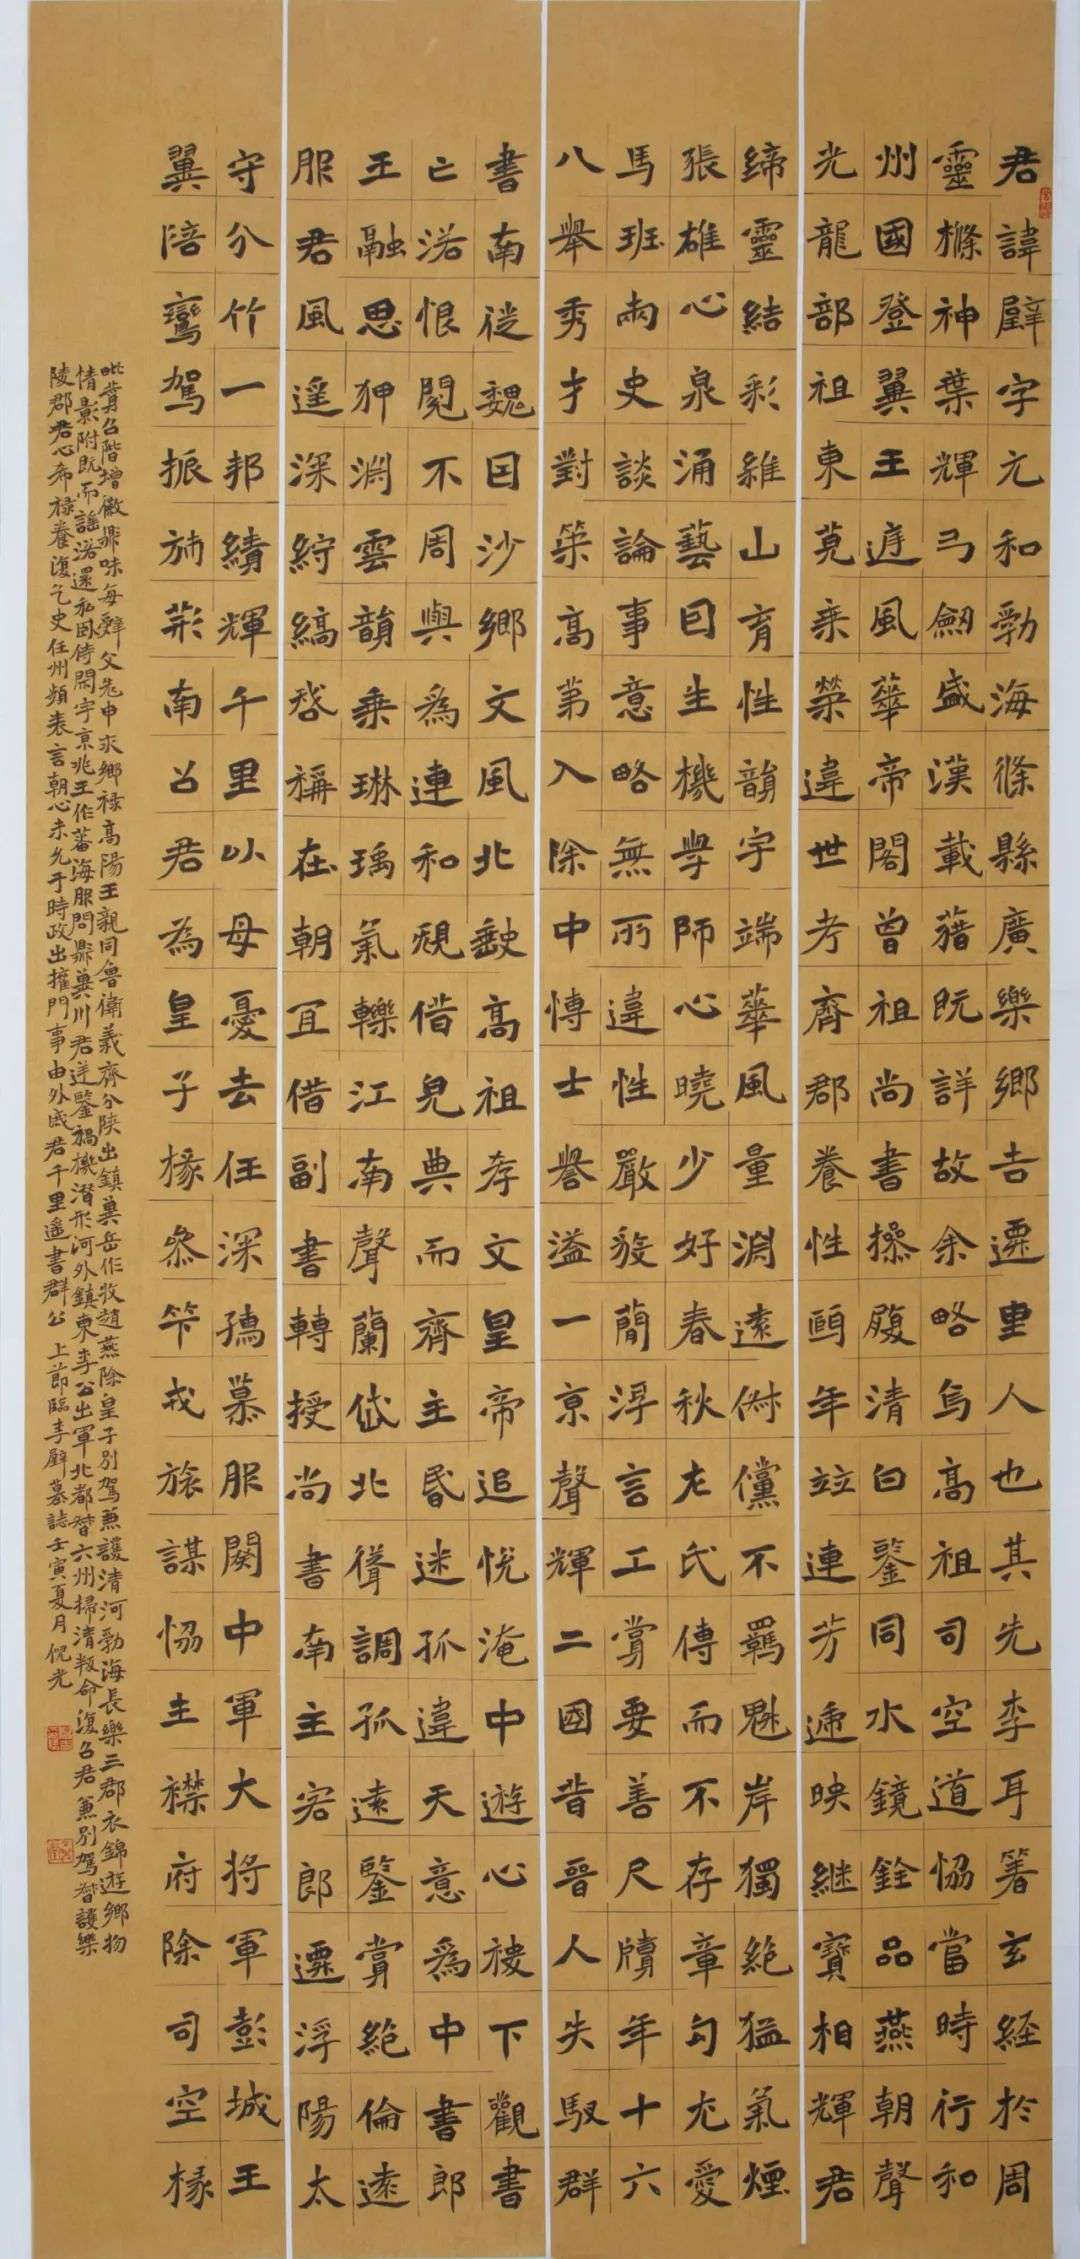 君諱壁字元和勃海條縣廣樂鄉吉遷里人也其先李耳著玄經於周
靈㯶神葉輝弓劒盛漢載藉既詳故余略焉高祖司空道恊當時行和
州國登翼王遅風華帝閣曾祖尚書操履清白鑒同水鏡銓品燕朝聲
光龍部祖東莞乘榮違世考齊郡養性頤年竝連芳遞映継寶相輝君
締靈結彩雒山育性韻宇端華風量淵遠倜儻不羈魁岸獨絶猛氣煙
張雄心泉涌藝因生機學師心曉少好春秋左氏傳而不存章句尤愛
馬班兩史談論事意略無所違性嚴毅簡浮言工賞要善尺牘年十六
八舉秀才對策高第入除中博士譽溢一京聲輝二國昔晉人失馭群
書南從魏因沙鄉文風北缺高祖孝文皇帝追悅淹中遊心稷下觀書
亡落恨閱不周與為連和規借完典而齊主昏迷孤違天意為中書郎
王融思狎淵雲韻乘琳瑀氣轢江南聲蘭岱北聳調孤遠鑒賞絶倫遠
服君風遥深紵縞啓稱在朝宜借副書轉授尚書南主客郎遷浮陽太
守分竹一邦績輝千里以母憂去任深孺慕服闋中軍大将軍彭城王
翼陪鸞駕振旆荊南召君為皇子掾參筞戎旅謀恊主襟府除司空掾
毗賛台階増徽鼎味每辭父老申求鄉祿高陽王親同魯衛義齊分陝出鎮冀岳作牧趙燕除皇子別駕兼護清河勃海長樂三郡衣錦遊鄉物
情影附既而謠落還私臥侍閑宇京兆王作蕃海服問鼎冀川君逆鑒禍機潛形河外鎮東李公出軍北都督六州掃清叛命復召君兼別駕督護樂
陵郡君心希祿養復乞史任州頻表言朝心未允于時政出權門事由外戚君千里遙書群公 上節臨李壁墓誌壬寅夏月倪光